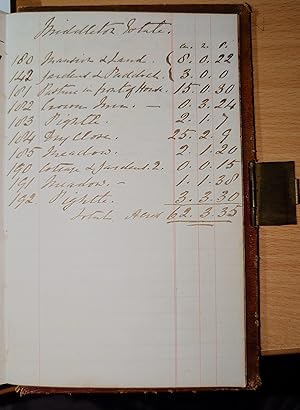 Middleton Estate.
a. r. p.
180 Mansion & Land. 8. 0. 22
142 Gardens & Paddock 3. 0. 0
181 Pasture in front of House. 15. 0. 30
1022 Crown Inn. - 0. 3. 24
1023 Pightle 2. 1. 7
1024 Dry Close. 25. 2. 9
185 Meadow. 2. 1. 20
190 Cottage & Gardens. 2 0. 0. 15
191 Meadow. - 1. 1. 38
192 Pightle. 3. 3. 30
Total Acres 62. 3. 35